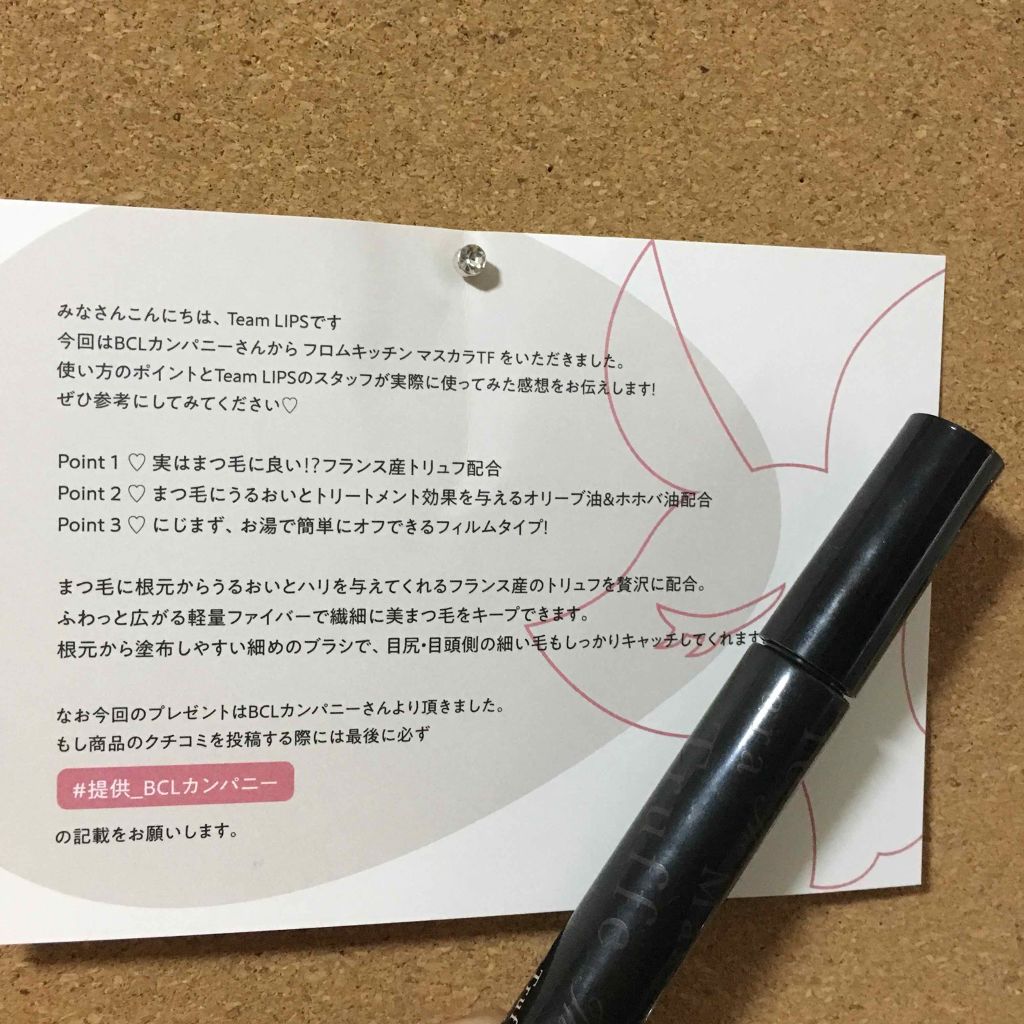 みなさんこんにちは、Team LIPSです
今回はBCLカンパニーさんから フロムキッチン マスカラTF をいただきました。
使い方のポイントとTeam LIPSのスタッフが実際に使ってみた感想をお伝えします!
ぜひ参考にしてみてください♡
Point 1 ♡ 実はまつ毛に良い!?フランス産トリュフ配合
Point 2 ♡ まつ毛にうるおいとトリートメント効果を与えるオリーブ油&ホホバ油配合
Point 3 ♡ にじまず、お湯で簡単にオフできるフィルムタイプ!
まつ毛に根元からうるおいとハリを与えてくれるフランス産のトリュフを贅沢に配合。
ふわっと広がる軽量ファイバーで繊細に美まつ毛をキープできます。
根元から塗布しやすい細めのブラシで、目尻・目頭側の細い毛もしっかりキャッチしてくれます。
なお今回のプレゼントはBCLカンパニーさんより頂きました。
もし商品のクチコミを投稿する際には最後に必ず
#提供_BCLカンパニー
の記載をお願いします。
Truffe